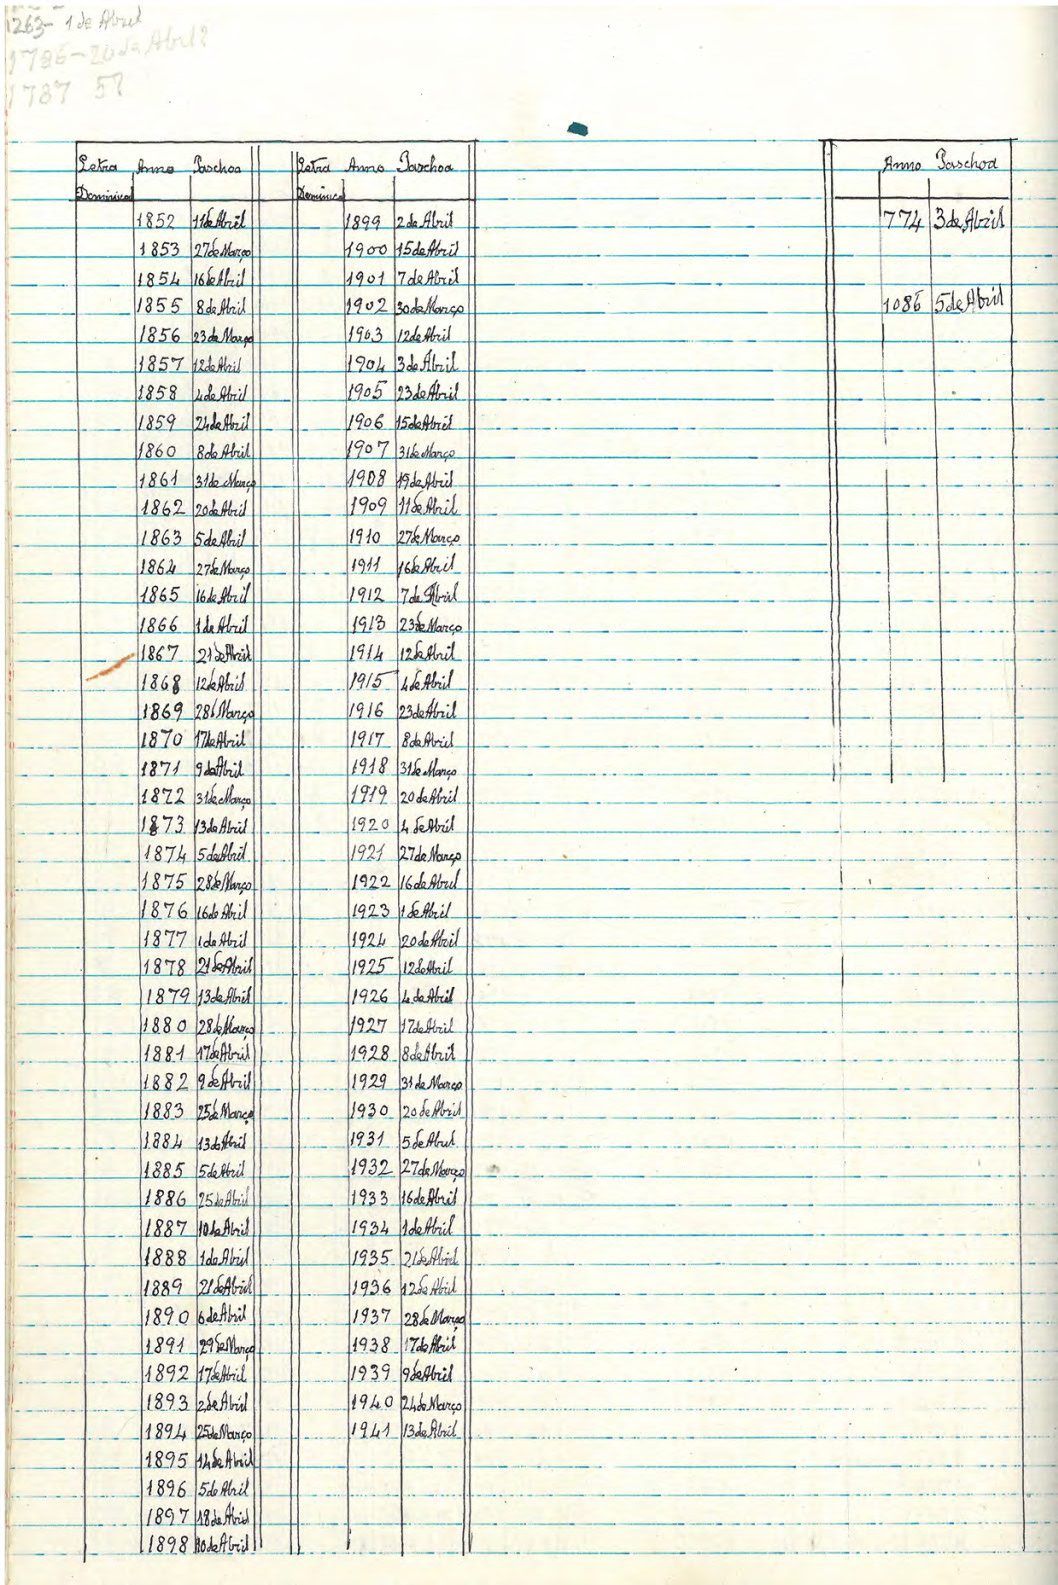 1263- 1 de Abril
1786-26 de Abril?
1787 5?
Letra Anno Paschoa Letra Anno Paschoa Anno Paschoa
Dominical Dominical
1852 11 de Abril 1899 2 de Abril 774 3 de Abril
1853 27 de Março 1900 15 de Abril
1854 16 de Abril 1901 7 de Abril
1855 8 de Abril 1902 30 de Março 1086 5 de Abril
1856 23 de Março 1903 12 de Abril
1857 12 de Abril 1904 3 de Abril
1858 4 de Abril 1905 23 de Abril
1859 24 de Abril 1906 15 de Abril
1860 8 de Abril 1907 31 de Março
1861 31 de Março 1908 19 de Abril
1862 20 de Abril 1909 11 de Abril
1863 5 de Abril 1910 27 de Março
1864 27 de Março 1911 16 de Abril
1865 16 de Abril 1912 7 de Abril
1866 1 de Abril 1913 23 de Março
1867 21 de Abril 1914 12 de Abril
1868 12 de Abril 1915 4 de Abril
1869 28 de Março 1916 23 de Abril
1870 17 de Abril 1917 8 de Abril
1871 9 de Abril 1918 31 de Março
1872 31 de Março 1919 20 de Abril
1873 13 de Abril 1920 4 de Abril
1874 5 de Abril 1921 27 de Março
1875 28 de Março 1922 16 de Abril
1876 16 de Abril 1923 1 de Abril
1877 1 de Abril 1924 20 de Abril
1878 21 de Abril 1925 12 de Abril
1879 13 de Abril 1926 4 de Abril
1880 28 de Março 1927 17 de Abril
1881 17 de Abril 1928 8 de Abril
1882 9 de Abril 1929 31 de Março
1883 25 de Março 1930 20 de Abril
1884 13 de Abril 1931 5 de Abril
1885 5 de Abril 1932 27 de Março
1886 25 de Abril 1933 16 de Abril
1887 10 de Abril 1934 1 de Abril
1888 1 de Abril 1935 21 de Abril
1889 21 de Abril 1936 12 de Abril
1890 6 de Abril 1937 28 de Março
1891 29 de Março 1938 17 de Abril
1892 17 de Abril 1939 9 de Abril
1893 2 de Abril 1940 24 de Março
1894 25 de Março 1941 13 de Abril
1895 14 de Abril
1896 5 de Abril
1897 18 de Abril
1898 10 de Abril